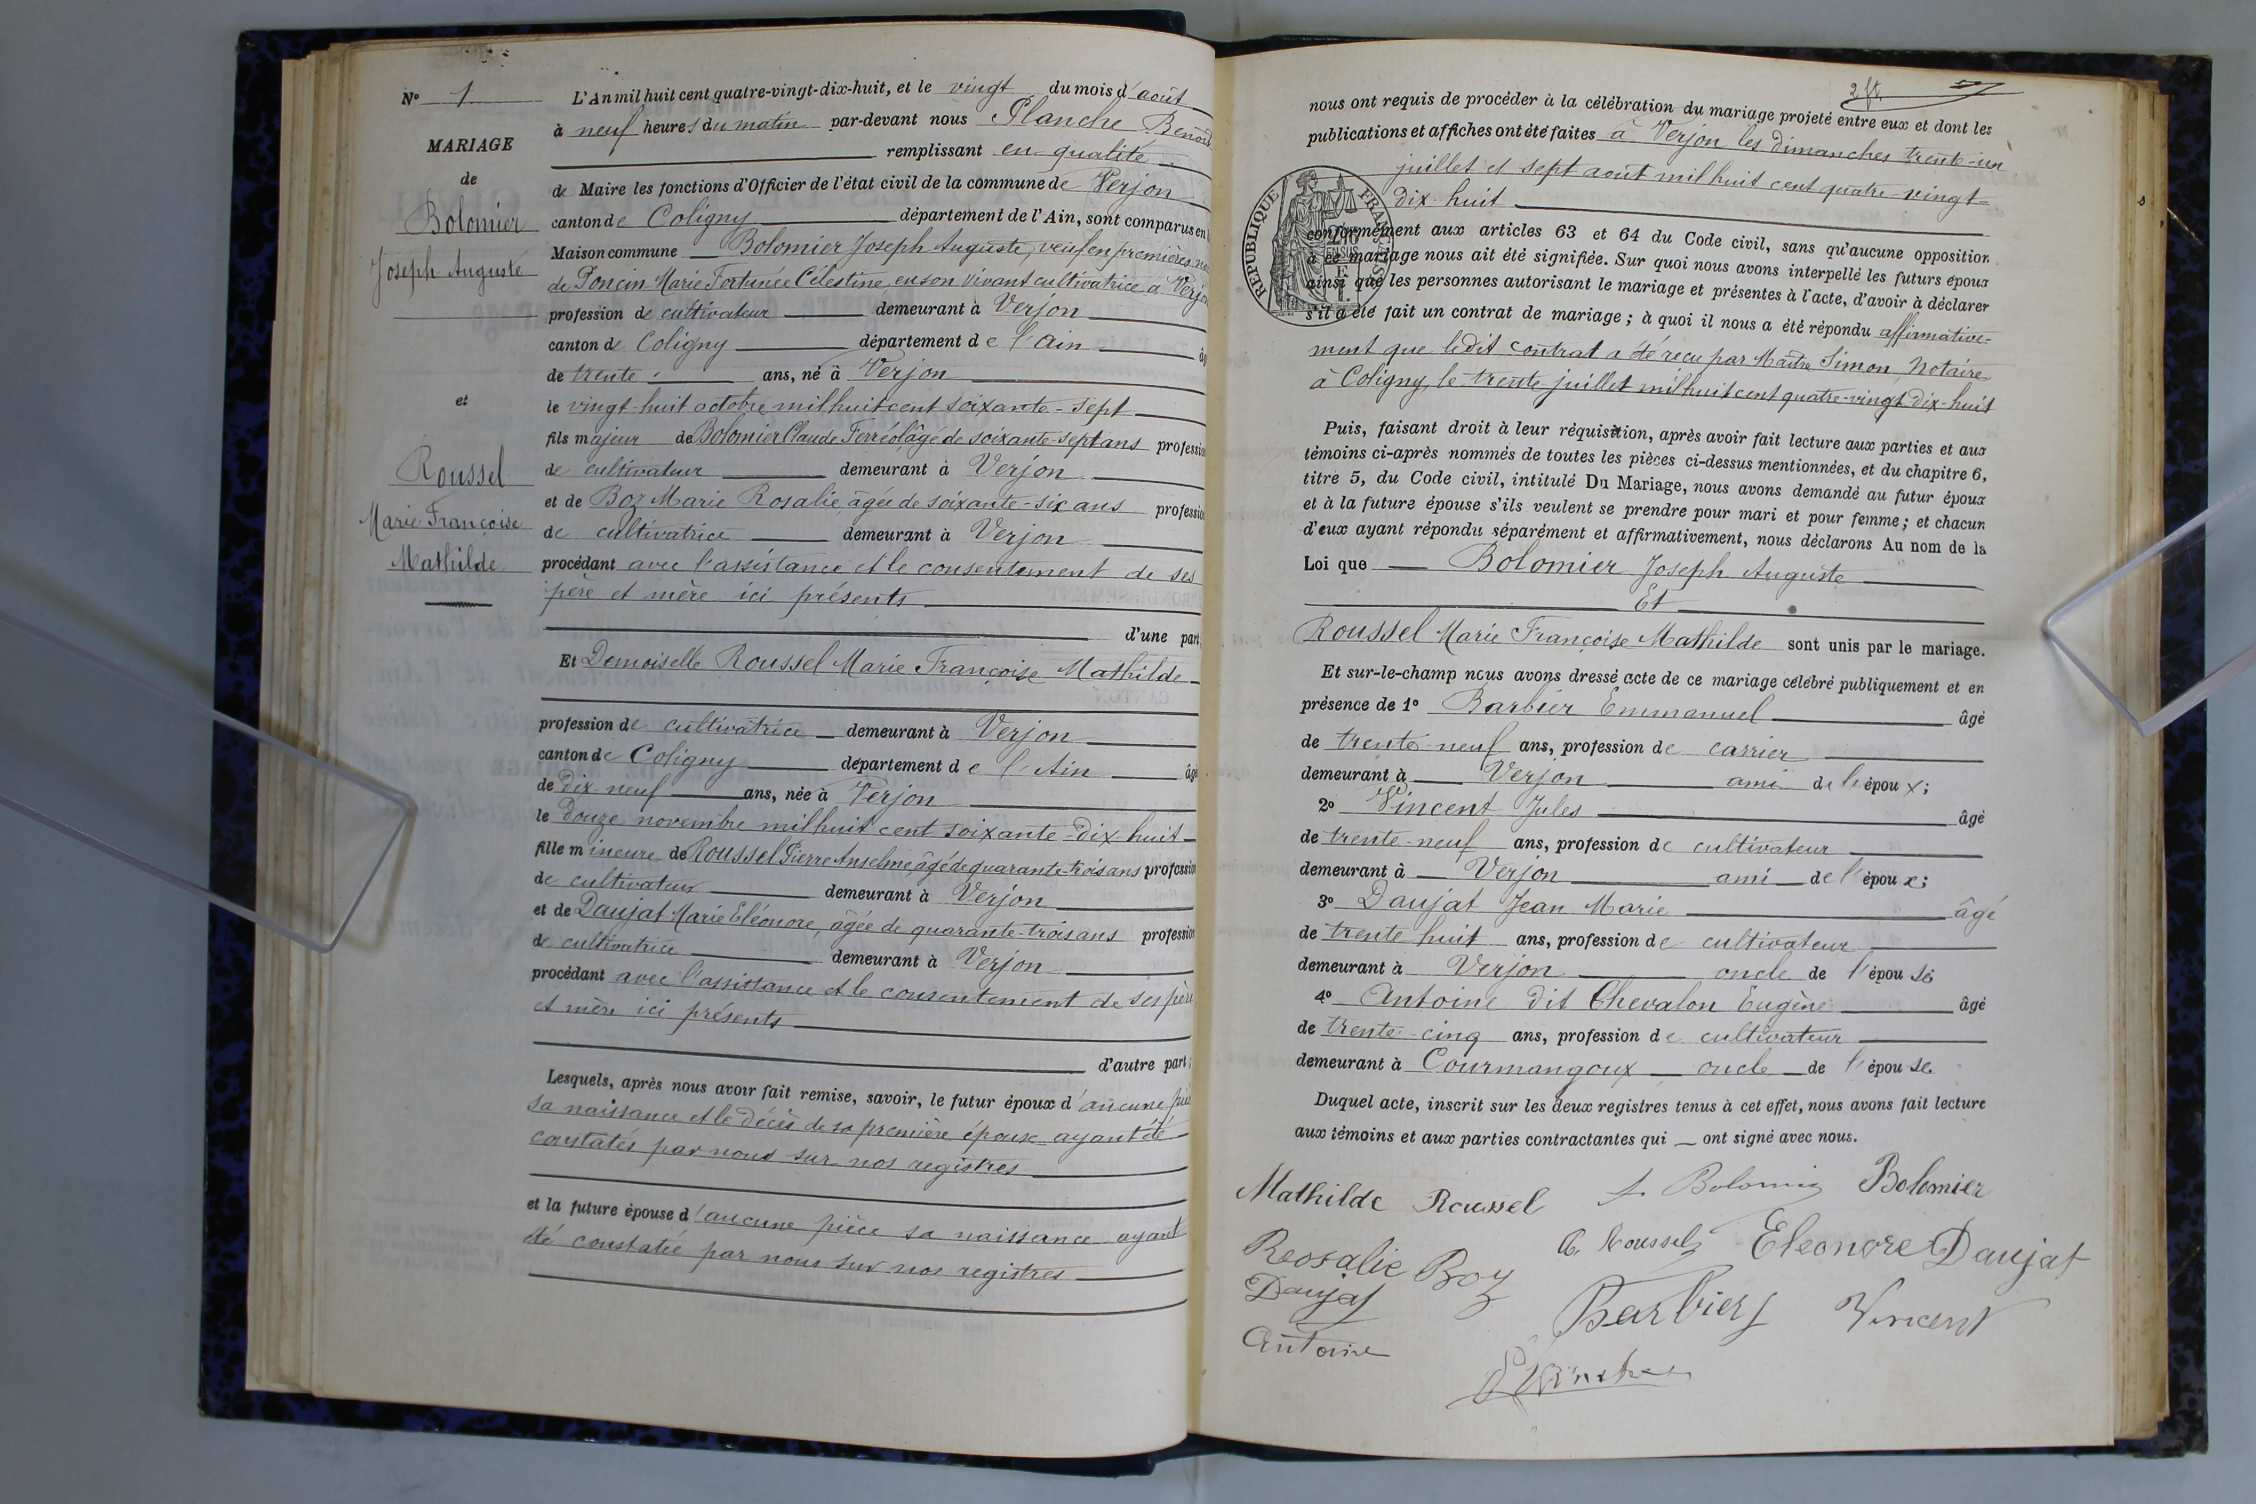 N° 1
MARIAGE
de
Bolomier
Joseph Auguste
et
Roussel
Marie Françoise
Mathilde
L'An mil huit cent quatre-vingt-dix-huit, et le vingt du mois d'août
à neuf heures du matin par-devant nous Planche Benoit
remplissant en qualité
de Maire les fonctions d'Officier de l'état civil de la commune de Verjon
canton de Coligny département de l'Ain, sont comparus en
Maison commune Bolomier Joseph Auguste, veuf en premières
de Poncin Marie Fortunée Célestine, en son vivant cultivatrice à Verjon
profession de cultivateur demeurant à Verjon
canton de Coligny département de l'Ain âg
de trente ans, né à Verjon
le vingt-huit octobre mil huit cent soixante-sept
fils majeur de Bolomier Claude Ferréol âgé de soixante-sept ans profession
de cultivateur demeurant à Verjon
et de Boz Marie Rosalie, âgée de soixante-six ans profession
de cultivatrice demeurant à Verjon
procédant avec l'assistance et le consentement de ses
père et mère ici présents
d'une part,
Et Demoiselle Roussel Marie Françoise Mathilde
profession de cultivatrice demeurant à Verjon
canton de Coligny département de l'Ain âgé
de dix-neuf ans, née à Verjon
le douze novembre mil huit cent soixante-dix-huit
fille mineure de Roussel Pierre Anselme, âgé de quarante-trois ans profession
de cultivateur demeurant à Verjon
et de Daujat Marie Eléonore, âgée de quarante-trois ans profession
de cultivatrice demeurant à Verjon
procédant avec l'assistance et le consentement de ses père
et mère ici présents
d'autre part;
Lesquels, après nous avoir fait remise, savoir, le futur époux d'aucune pièce
sa naissance et le décès de sa première épouse ayant été
constatés par nous sur nos registres
et la future épouse d'aucune pièce sa naissance ayant
été constatée par nous sur nos registres
2 ft.
nous ont requis de procéder à la célébration du mariage projeté entre eux et dont les
publications et affiches ont été faites à Verjon les dimanches trente-un
juillet et sept août mil huit cent quatre-vingt-
dix-huit
RÉPUBLIQUE FRANÇAISE
conformément aux articles 63 et 64 du Code civil, sans qu'aucune opposition
à ce mariage nous ait été signifiée. Sur quoi nous avons interpellé les futurs époux
ainsi que les personnes autorisant le mariage et présentes à l'acte, d'avoir à déclarer
s'il a été fait un contrat de mariage; à quoi il nous a été répondu affirmative-
ment que ledit contrat a été reçu par Maître Simon, Notaire
à Coligny, le trente juillet mil huit cent quatre-vingt-dix-huit
Puis, faisant droit à leur réquisition, après avoir fait lecture aux parties et aux
témoins ci-après nommés de toutes les pièces ci-dessus mentionnées, et du chapitre 6,
titre 5, du Code civil, intitulé Du Mariage, nous avons demandé au futur époux
et à la future épouse s'ils veulent se prendre pour mari et pour femme; et chacun
d'eux ayant répondu séparément et affirmativement, nous déclarons Au nom de la
Loi que Bolomier Joseph Auguste
Et
Roussel Marie Françoise Mathilde sont unis par le mariage.
Et sur-le-champ nous avons dressé acte de ce mariage célébré publiquement et en
présence de 1° Barbier Emmanuel âgé
de trente-neuf ans, profession de carrier
demeurant à Verjon ami de l'époux;
2° Vincent Jules âgé
de trente-neuf ans, profession de cultivateur
demeurant à Verjon ami de l'époux;
3° Daujat Jean Marie âgé
de trente huit ans, profession de cultivateur
demeurant à Verjon oncle de l'épouse
4° Antoine dit Chevalon Eugène âgé
de trente-cinq ans, profession de cultivateur
demeurant à Courmangoux oncle de l'épouse
Duquel acte, inscrit sur les deux registres tenus à cet effet, nous avons fait lecture
aux témoins et aux parties contractantes qui ont signé avec nous.
Mathilde Roussel Bolomier Bolomier
Reosalie Boz A. Roussel Eleonore Daujat
Daujat Barbier Vincent
Antoine
Planche